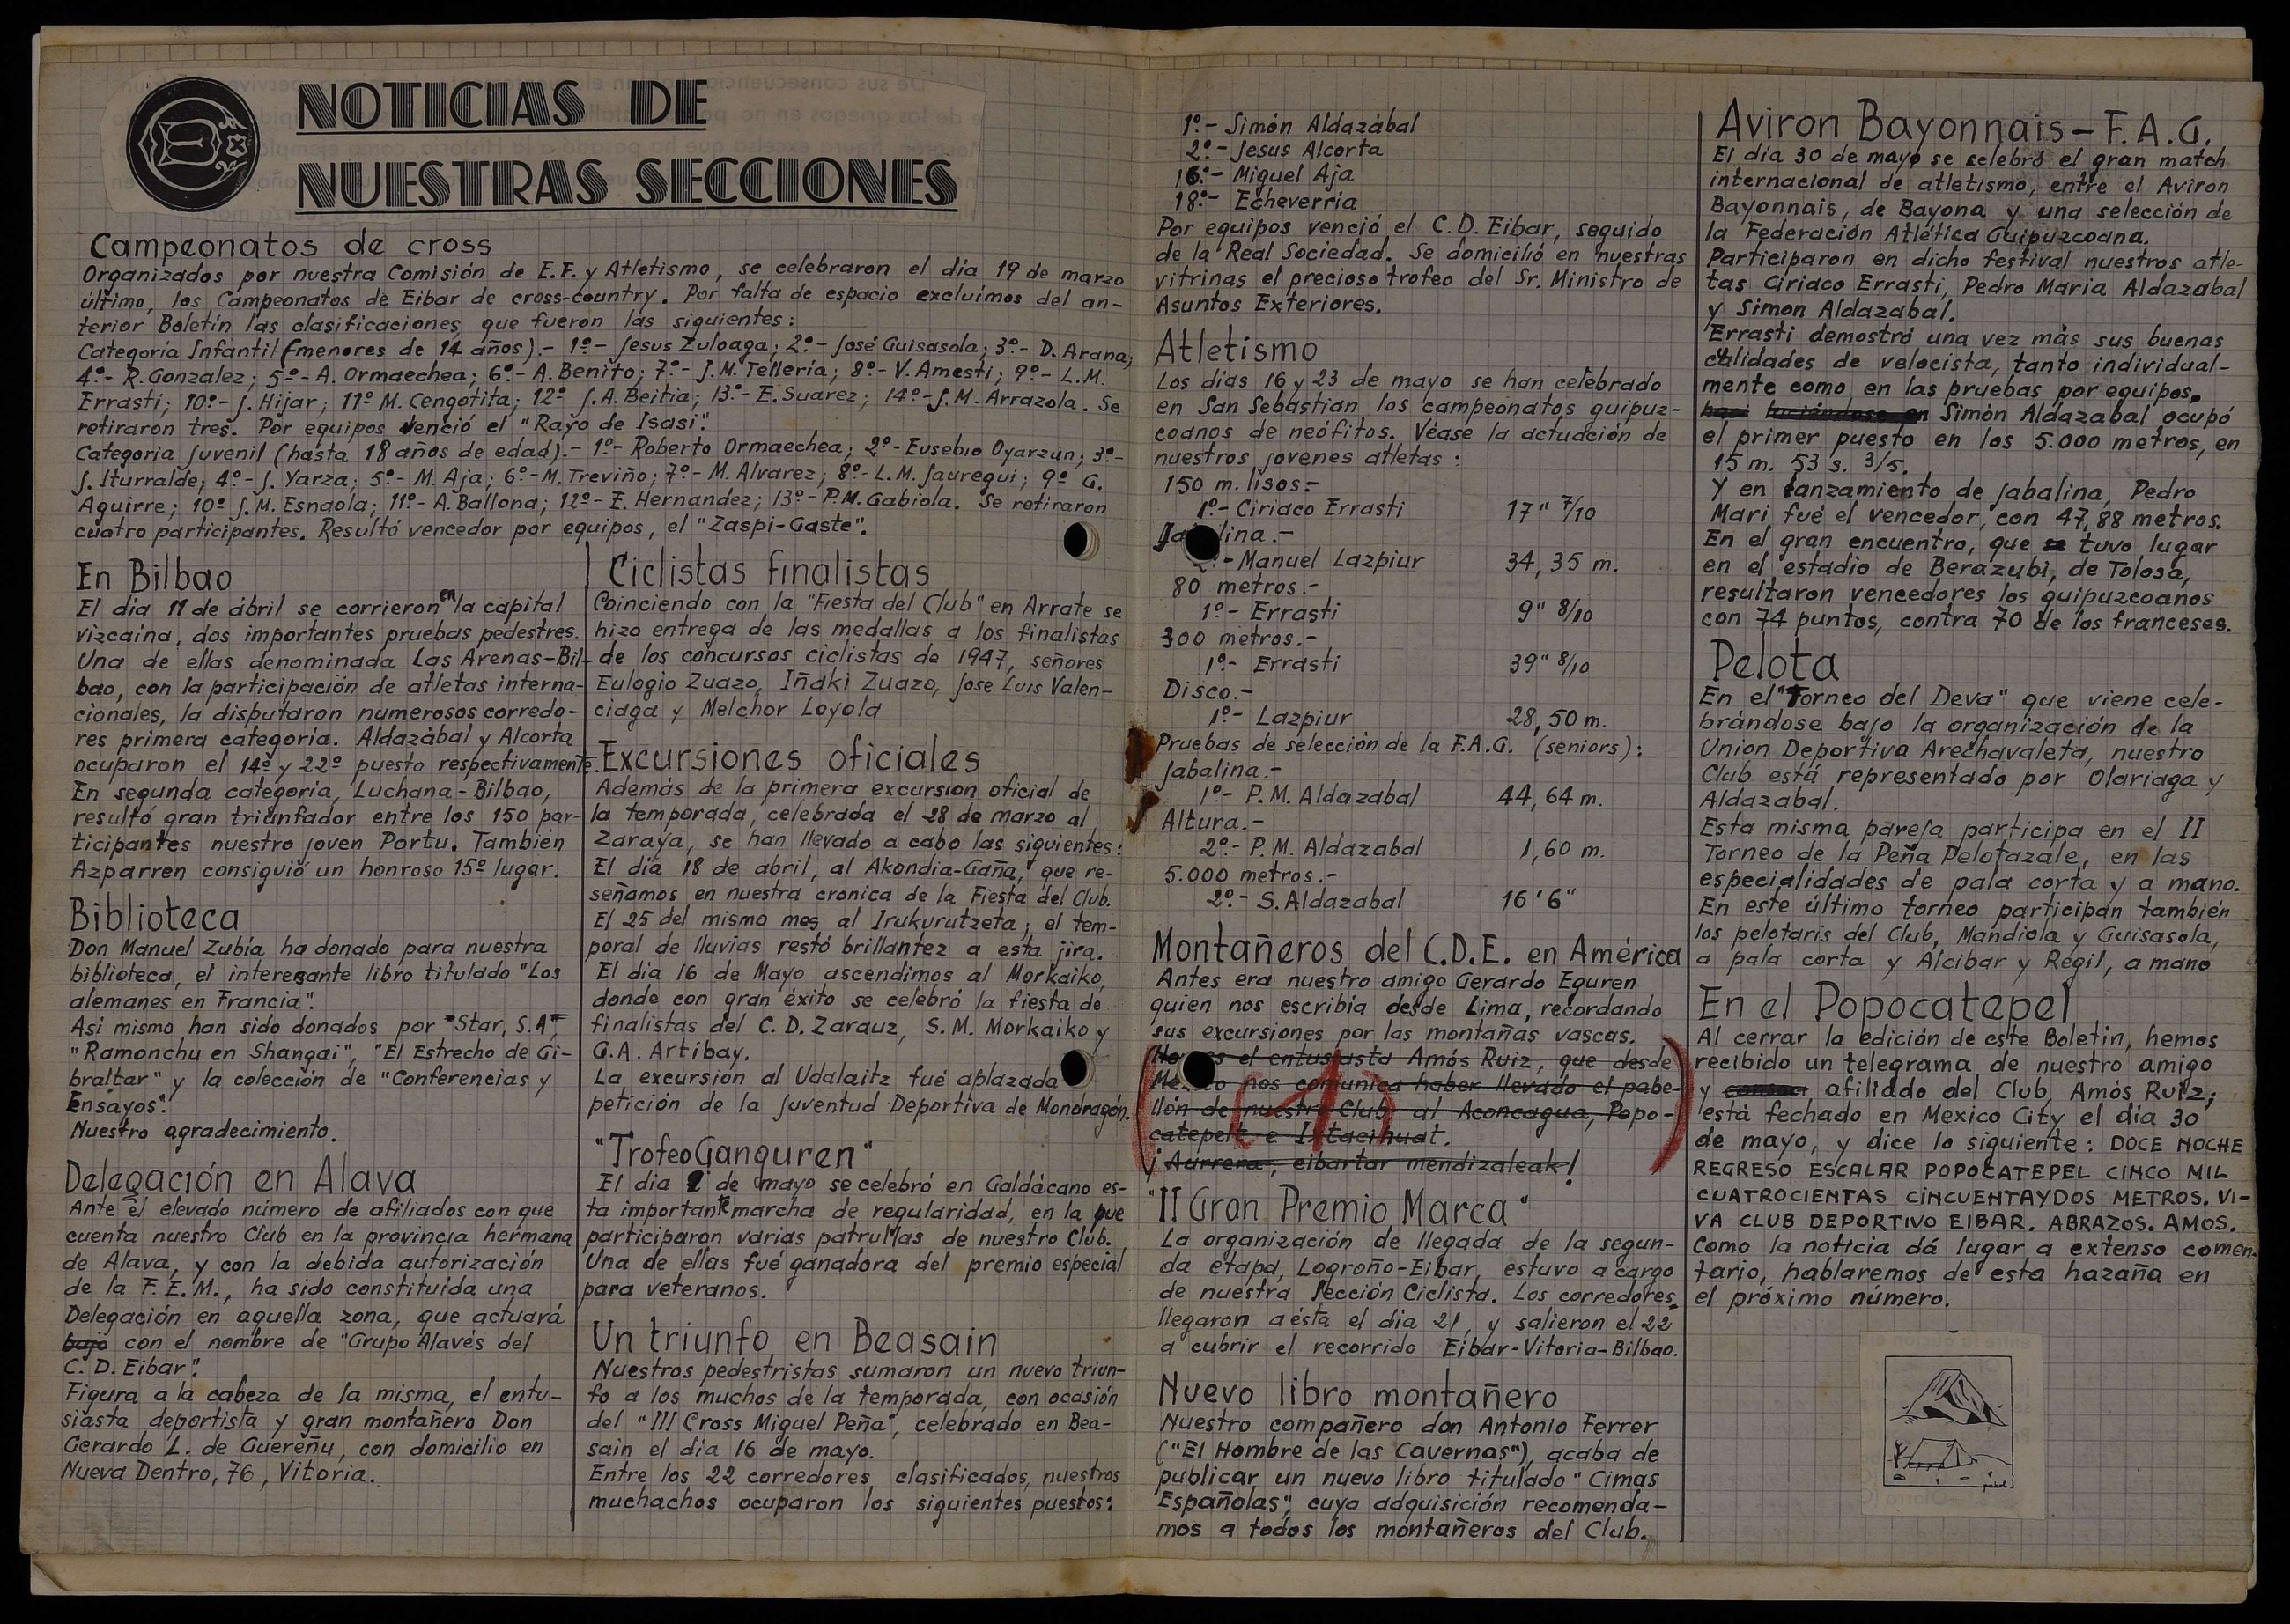 NOTICIAS DE
NUESTRAS SECCIONES
Campeonatos de cross
Organizados por nuestra Comisión de E.F. y Atletismo, se celebraron el día 19 de marzo
último, los Campeonatos de Eibar de cross-country. Por falta de espacio excluimos del an-
terior Boletín las clasificaciones que fueron las siguientes:
Categoría Infantil (menores de 14 años).- 1º.- Jesus Zuloaga; 2º.- José Guisasola; 3º.- D. Arana;
4º.- R. Gonzalez; 5º.- A. Ormaechea; 6º.- A. Benito; 7º.- J.M. Tellería; 8º.- V. Amesti; 9º.- L.M.
Errasti; 10º.- J. Hijar; 11º M. Cengotita; 12º J.A. Beitia; 13º.- E. Suarez; 14º.- J.M. Arrazola. Se
retiraron tres. Por equipos venció el "Rayo de Isasi".
Categoria Juvenil (hasta 18 años de edad).- 1º.- Roberto Ormaechea; 2º.- Eusebio Oyarzun; 3º.-
J. Iturralde; 4º.- J. Yarza; 5º.- M. Aja; 6º.- M. Treviño; 7º.- M. Alvarez; 8º.- L.M. Jauregui; 9º G.
Aguirre; 10º J.M. Esnaola; 11º.- A. Ballona; 12º.- E. Hernandez; 13º.- P.M. Gabiola. Se retiraron
cuatro participantes. Resultó vencedor por equipos, el "Zaspi-Gaste".
En Bilbao
El día 11 de abril se corrieron en la capital
vizcaina, dos importantes pruebas pedestres.
Una de ellas denominada Las Arenas-Bil-
bao, con la participación de atletas interna-
cionales, la disputaron numerosos corredo-
res primera categoría. Aldazábal y Alcorta
ocuparon el 14º y 22º puesto respectivamente.
En segunda categoria, Luchana-Bilbao,
resultó gran triunfador entre los 150 par-
ticipantes nuestro joven Portu. Tambien
Azparren consiguió un honroso 15º lugar.
Biblioteca
Don Manuel Zubía ha donado para nuestra
biblioteca, el interesante libro titulado "Los
alemanes en Francia".
Asi mismo han sido donados por "Star, S.A",
"Ramonchu en Shangai", "El Estrecho de Gi-
braltar" y la colección de "Conferencias y
Ensayos".
Nuestro agradecimiento.
Delegación en Alava
Ante el elevado número de afiliados con que
cuenta nuestro Club en la provincia hermana
de Alava, y con la debida autorización
de la F.E.M., ha sido constituída una
Delegación en aquella zona, que actuará
bajo con el nombre de "Grupo Alavés del
C. D. Eibar".
Figura a la cabeza de la misma, el entu-
siasta deportista y gran montañero Don
Gerardo L. de Guereñu, con domicilio en
Nueva Dentro, 76, Vitoria.
Ciclistas finalistas
Coinciendo con la "Fiesta del Club" en Arrate se
hizo entrega de las medallas a los finalistas
de los concursos ciclistas de 1947, señores
Eulogio Zuazo, Iñaki Zuazo, Jose Luis Valen-
ciaga y Melchor Loyola
Excursiones oficiales
Además de la primera excursion oficial de
la temporada, celebrada el 28 de marzo al
Zaraya, se han llevado a cabo las siguientes:
El día 18 de abril, al Akondia-Gaña, que re-
señamos en nuestra cronica de la Fiesta del Club.
El 25 del mismo mes al Irukurutzeta; el tem-
poral de lluvias restó brillantez a esta jira.
El dia 16 de Mayo ascendimos al Morkaiko,
donde con gran éxito se celebró la fiesta de
finalistas del C. D. Zarauz, S. M. Morkaiko y
G.A. Artibay.
La excursión al Udalaitz fué aplazada
petición de la Juventud Deportiva de Mondragón.
"Trofeo Ganguren"
El dia 2 de mayo se celebró en Galdácano es-
ta importante marcha de regularidad, en la que
participaron varias patrullas de nuestro Club.
Una de ellas fué ganadora del premio especial
para veteranos.
Un triunfo en Beasain
Nuestros pedestristas sumaron un nuevo triun-
fo a los muchos de la temporada, con ocasión
del "III Cross Miguel Peña", celebrado en Bea-
sain el día 16 de mayo.
Entre los 22 corredores clasificados, nuestros
muchachos ocuparon los siguientes puestos:
1º.- Simón Aldazábal
2º.- Jesus Alcorta
16º.- Miguel Aja
18º.- Echeverría
Por equipos venció el C.D. Eibar, seguido
de la Real Sociedad. Se domicilió en nuestras
vitrinas el precioso trofeo del Sr. Ministro de
Asuntos Exteriores.
Atletismo
Los días 16 y 23 de mayo se han celebrado
en San Sebastian los campeonatos guipuz-
coanos de neófitos. Véase la actuación de
nuestros jovenes atletas:
150 m. lisos:-
1º.- Ciriaco Errasti 17" 7/10
Ja lina.-
.- Manuel Lazpiur 34,35 m.
80 metros.-
1º.- Errasti 9" 8/10
300 metros.-
1º.- Errasti 39" 8/10
Disco.-
1º.- Lazpiur 28,50 m.
Pruebas de selección de la F.A.G. (seniors):
Jabalina.-
1º.- P.M. Aldazabal 44,64 m.
Altura.-
2º.- P.M. Aldazabal 1,60 m.
5.000 metros.-
2º.- S. Aldazabal 16'6"
Montañeros del C.D.E. en América
Antes era nuestro amigo Gerardo Eguren
quien nos escribía desde Lima, recordando
sus excursiones por las montañas vascas.
es el entusiasta Amós Ruiz, que desde
nos comunica haber llevado el pabe-
llón de nuestro Club al Aconcagua, Popo-
catepelt e Ixtacihuat.
¡Aurrera, eibartar mendizaleak!
"II Gran Premio Marca"
La organización de llegada de la segun-
da etapa, Logroño-Eibar, estuvo a cargo
de nuestra Sección Ciclista. Los corredores
llegaron a ésta el dia 21, y salieron el 22
a cubrir el recorrido Eibar-Vitoria-Bilbao.
Nuevo libro montañero
Nuestro compañero don Antonio Ferrer
("El Hombre de las Cavernas"), acaba de
publicar un nuevo libro titulado "Cimas
Españolas", cuya adquisición recomenda-
mos a todos los montañeros del Club.
Aviron Bayonnais-F.A.G.
El día 30 de mayo se celebró el gran match
internacional de atletismo, entre el Aviron
Bayonnais, de Bayona y una selección de
la Federación Atlética Guipuzcoana.
Participaron en dicho festival nuestros atle-
tas Ciriaco Errasti, Pedro Maria Aldazabal
y Simon Aldazabal.
Errasti demostró una vez más sus buenas
calidades de velocista, tanto individual-
mente como en las pruebas por equipos.
Simón Aldazabal ocupó
el primer puesto en los 5.000 metros, en
15 m. 53 s. 3/5.
Y en lanzamiento de jabalina, Pedro
Mari fué el vencedor, con 47,88 metros.
En el gran encuentro, que se tuvo lugar
en el estadio de Berazubi, de Tolosa,
resultaron vencedores los guipuzcoanos
con 74 puntos, contra 70 de los franceses.
Pelota
En el "Torneo del Deva" que viene cele-
brándose bajo la organización de la
Union Deportiva Arechavaleta, nuestro
Club está representado por Olariaga y
Aldazabal.
Esta misma pareja participa en el II
Torneo de la Peña Pelotazale, en las
especialidades de pala corta y a mano.
En este último torneo participan también
los pelotaris del Club, Mandiola y Guisasola,
a pala corta y Alcibar y Regil, a mano
En el Popocatepel
Al cerrar la edición de este Boletin, hemos
recibido un telegrama de nuestro amigo
y afiliado del Club, Amós Ruiz;
está fechado en Mexico City el día 30
de mayo, y dice lo siguiente: DOCE NOCHE
REGRESO ESCALAR POPOCATEPEL CINCO MIL
CUATROCIENTAS CINCUENTAYDOS METROS. VI-
VA CLUB DEPORTIVO EIBAR. ABRAZOS. AMOS.
Como la noticia dá lugar a extenso comen-
tario, hablaremos de esta hazaña en
el próximo número.